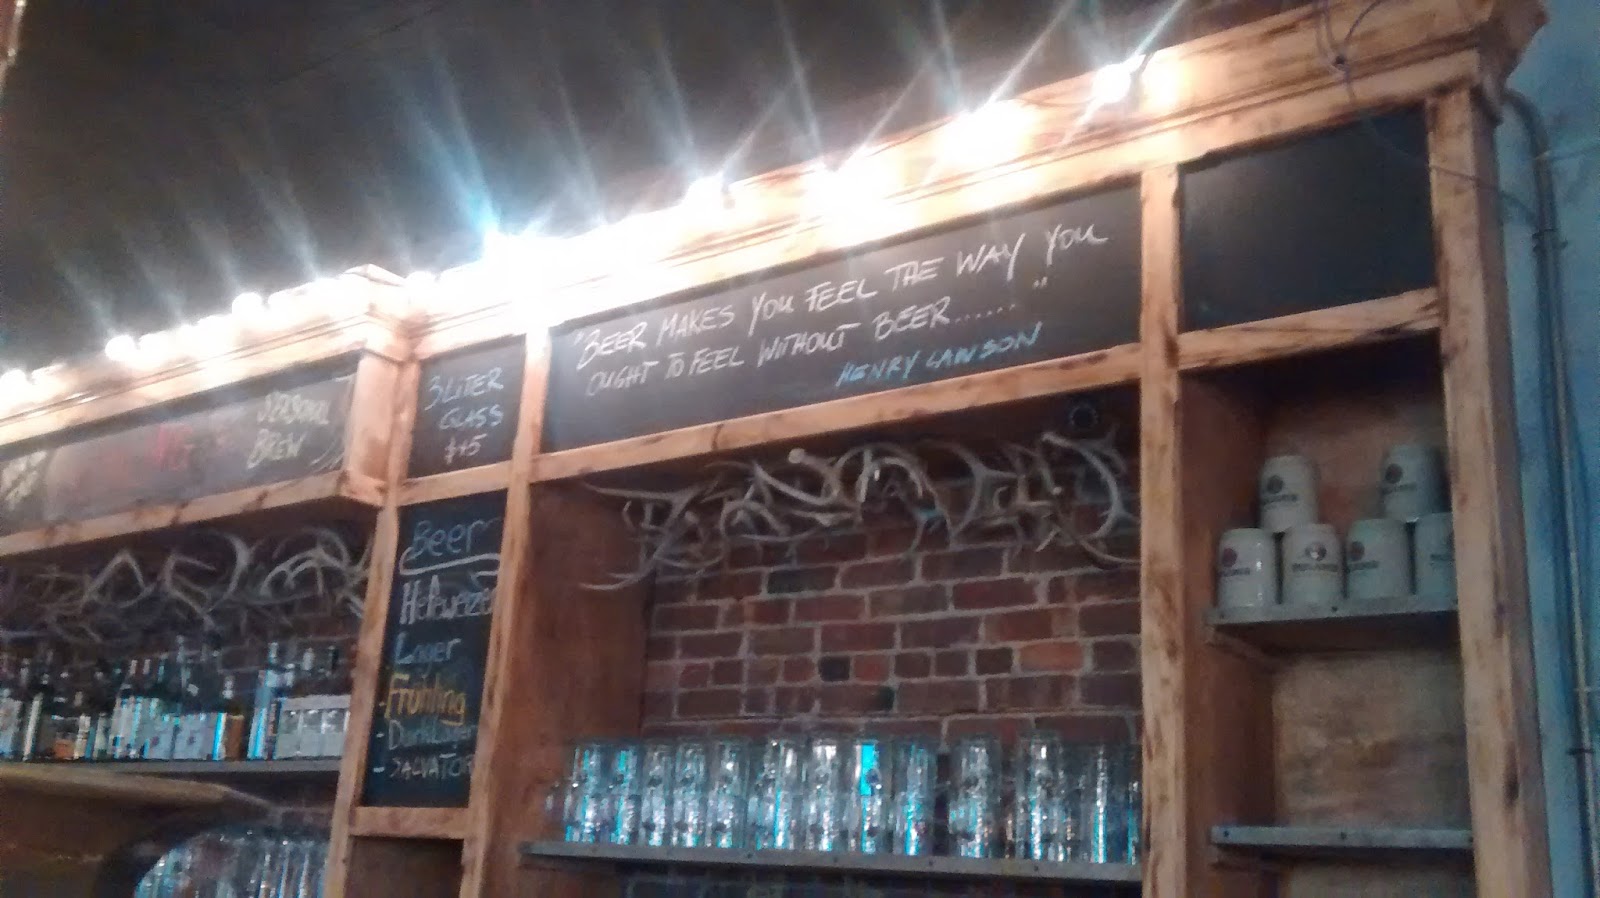 "BEER MAKES YOU FEEL THE WAY YOU
OUGHT TO FEEL WITHOUT BEER......"
HENRY LAWSON
3 LITER
GLASS
$45
SEASONAL
BREW
Beer
Hefeweizen
Lager
-Frühling
-Dark Lager
-SALVATOR